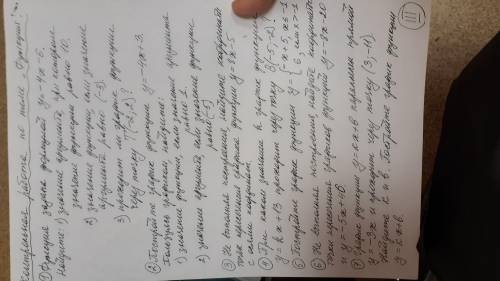 Контрольная работа по теме „Функции".
① Функция задана формулой y = 4x - 6.
Найдите: 1) значение аргумента при котором
значение функции равно 10.
2) значение функции, если значение
аргумента равно (-3)
3) проходит ли график функции
через точку
② Постройте график функции y = -4x + 3.
Пользуясь графиком, найдите:
1) значение функции, если значение аргумента
равно 1.
2) значение аргумента если значение функции
равно (-5)
③ Не выполняя построения, найдите координаты
точек пересечения графика функции y = 8x - 5
с осями координат.
④ При каком значении k график функции
y = kx + 13 проходит через точку B(-5; -2)?
⑤ Постройте график функции y = { -x + 5, x ≤ -1
6, если x > -1
⑥ Не выполняя построения, найдите координаты
точки пересечения графиков функций
⑦ График функции y = kx + b параллелен прямой
y = -3x и проходит через точку (3; -11).
Найдите k и b. Постройте график функции
y = kx + b.
III